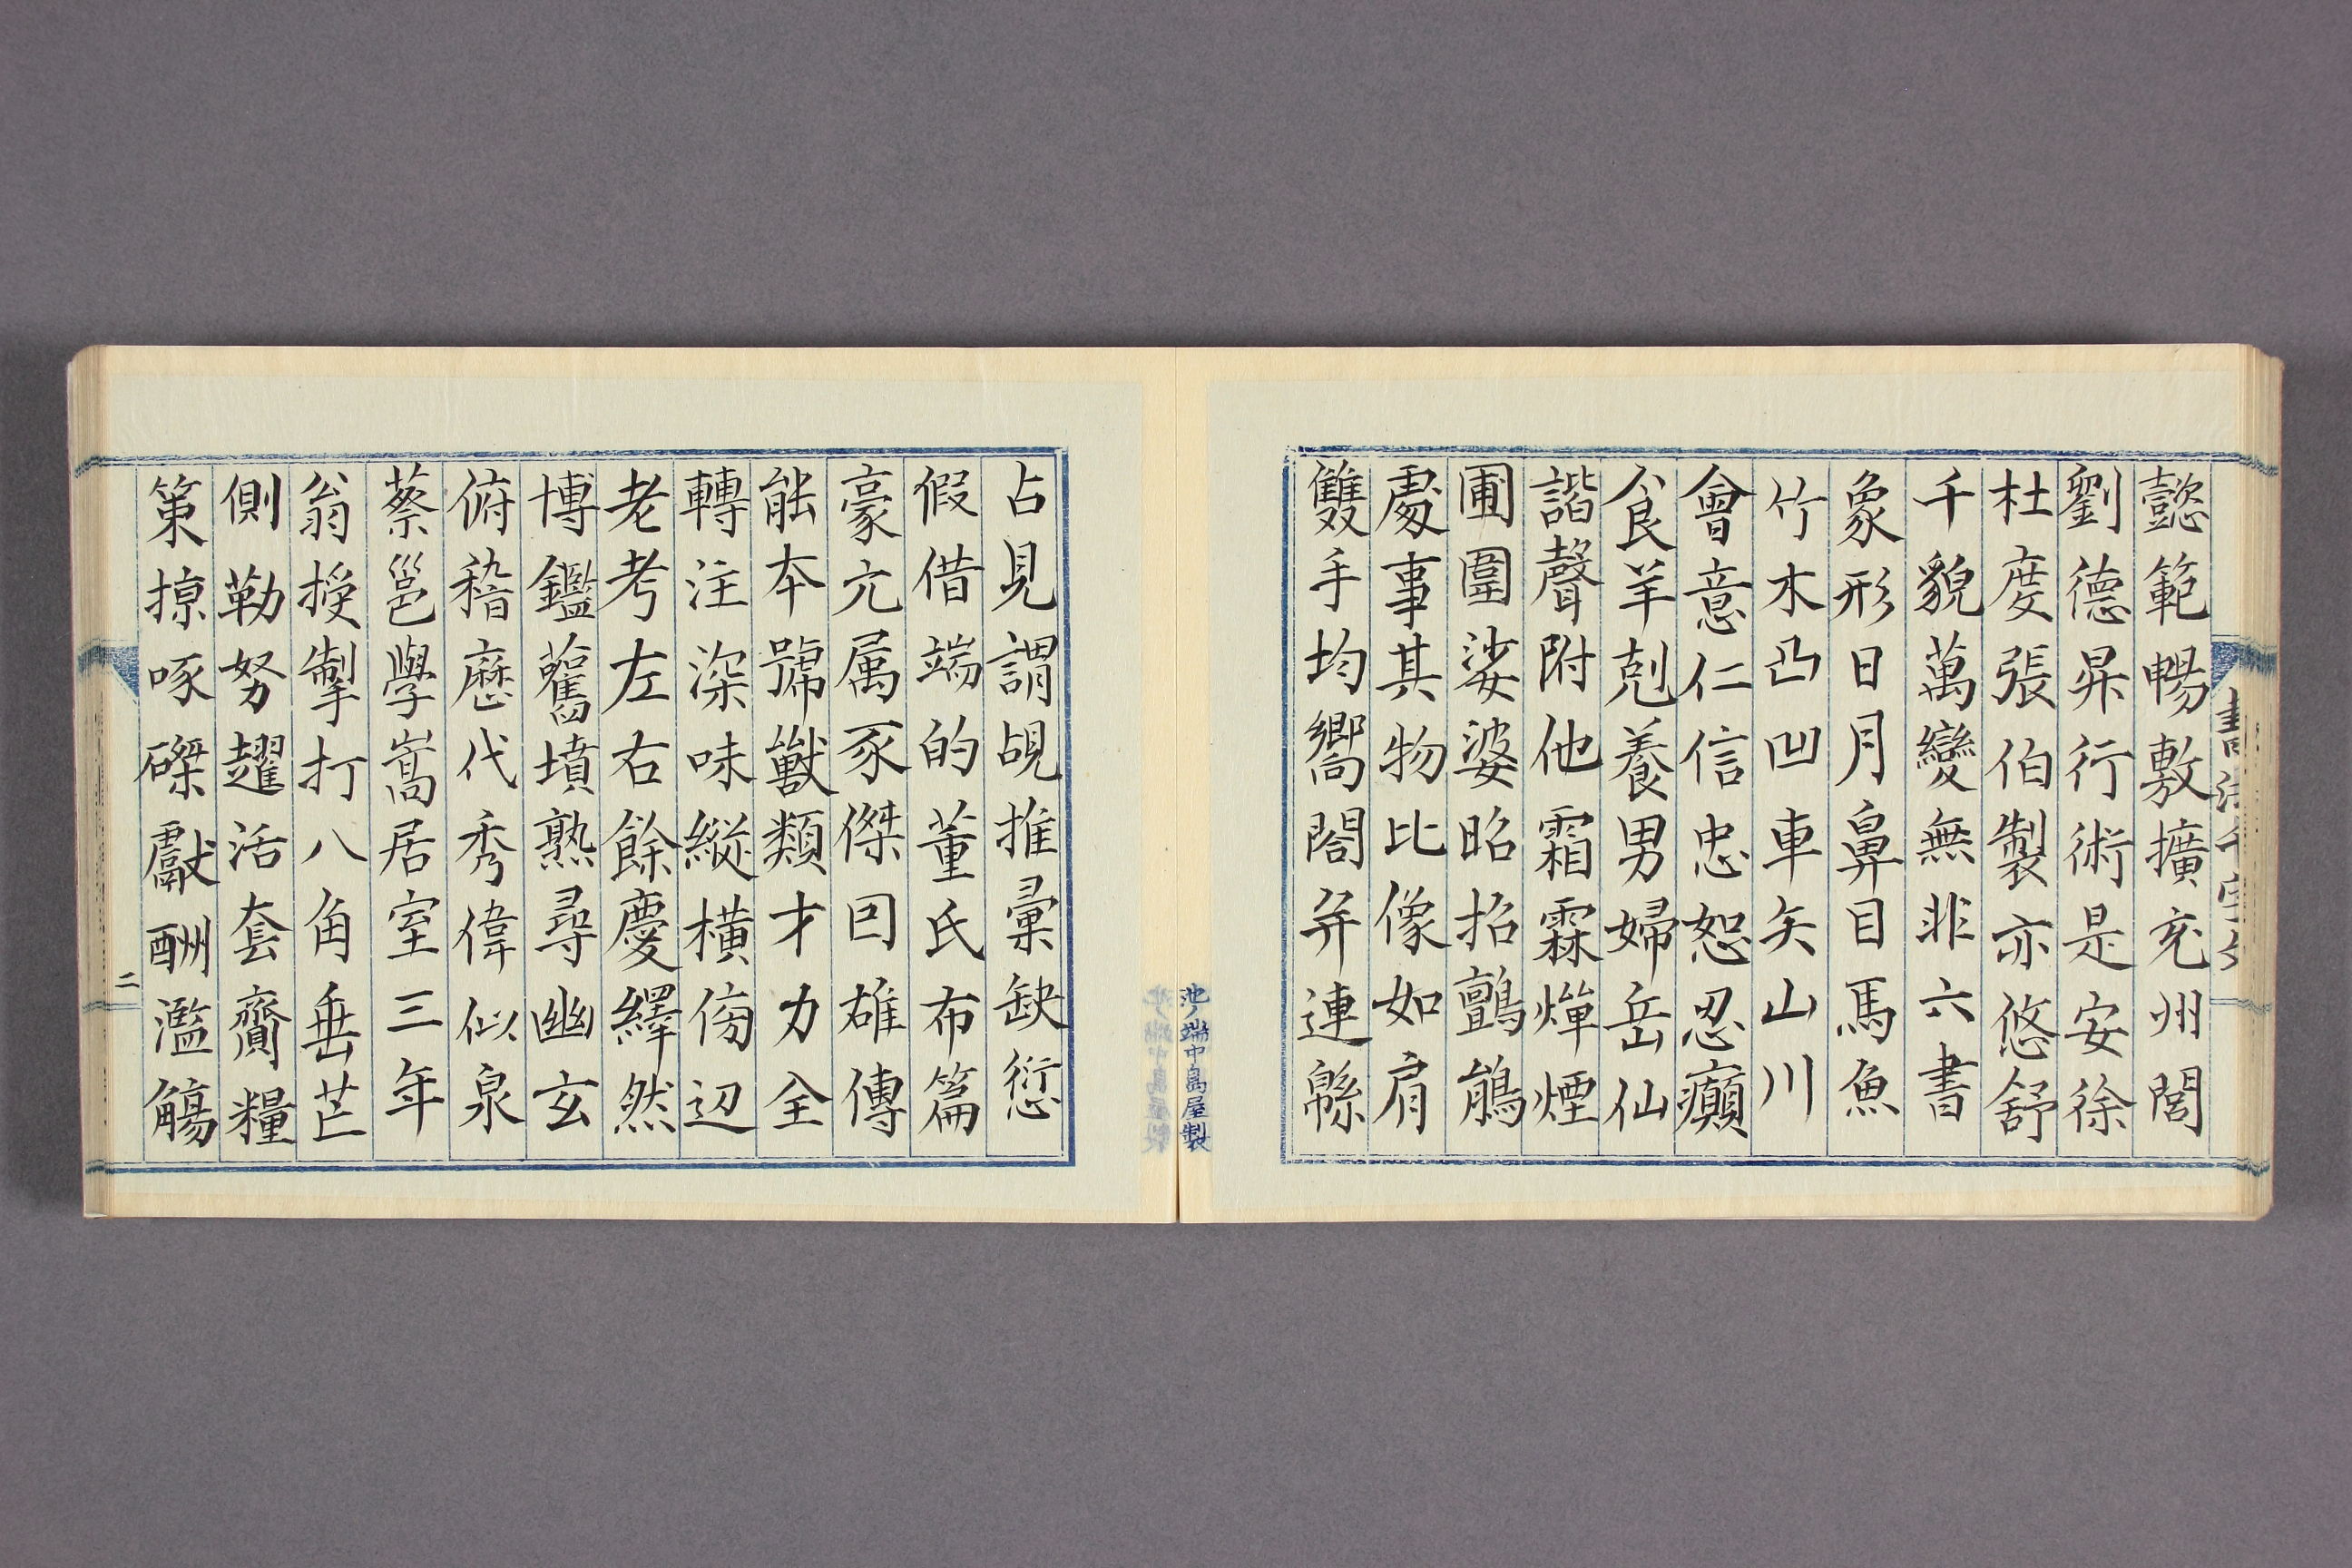 懿範暢敷擴充州閭
劉德昇行術是安徐
杜度張伯製亦悠舒
千貌萬變無非六書
象形日月鼻目馬魚
竹木凸凹車矢山川
會意仁信忠恕忍癲
食羊剋養男婦岳仙
諧聲附他霜霖燀煙
圃圍娑婆昭招鸇鵃
處事其物比像如肩
雙手均嚮閤并連緜
占見謂覘推彙缺愆
假借端的董氏布篇
豪亢属豕傑囙雄傳
能本號獣類才力全
轉注深味縱橫傍辺
老考左右餘慶繹然
博鑑舊墳熟尋幽玄
俯稽歴代秀偉似泉
蔡邕學嵩居室三年
翁授掣打八角垂芒
側勒努趯活套齎糧
策掠啄磔獻酬濫觴
二
池ノ端中島屋製